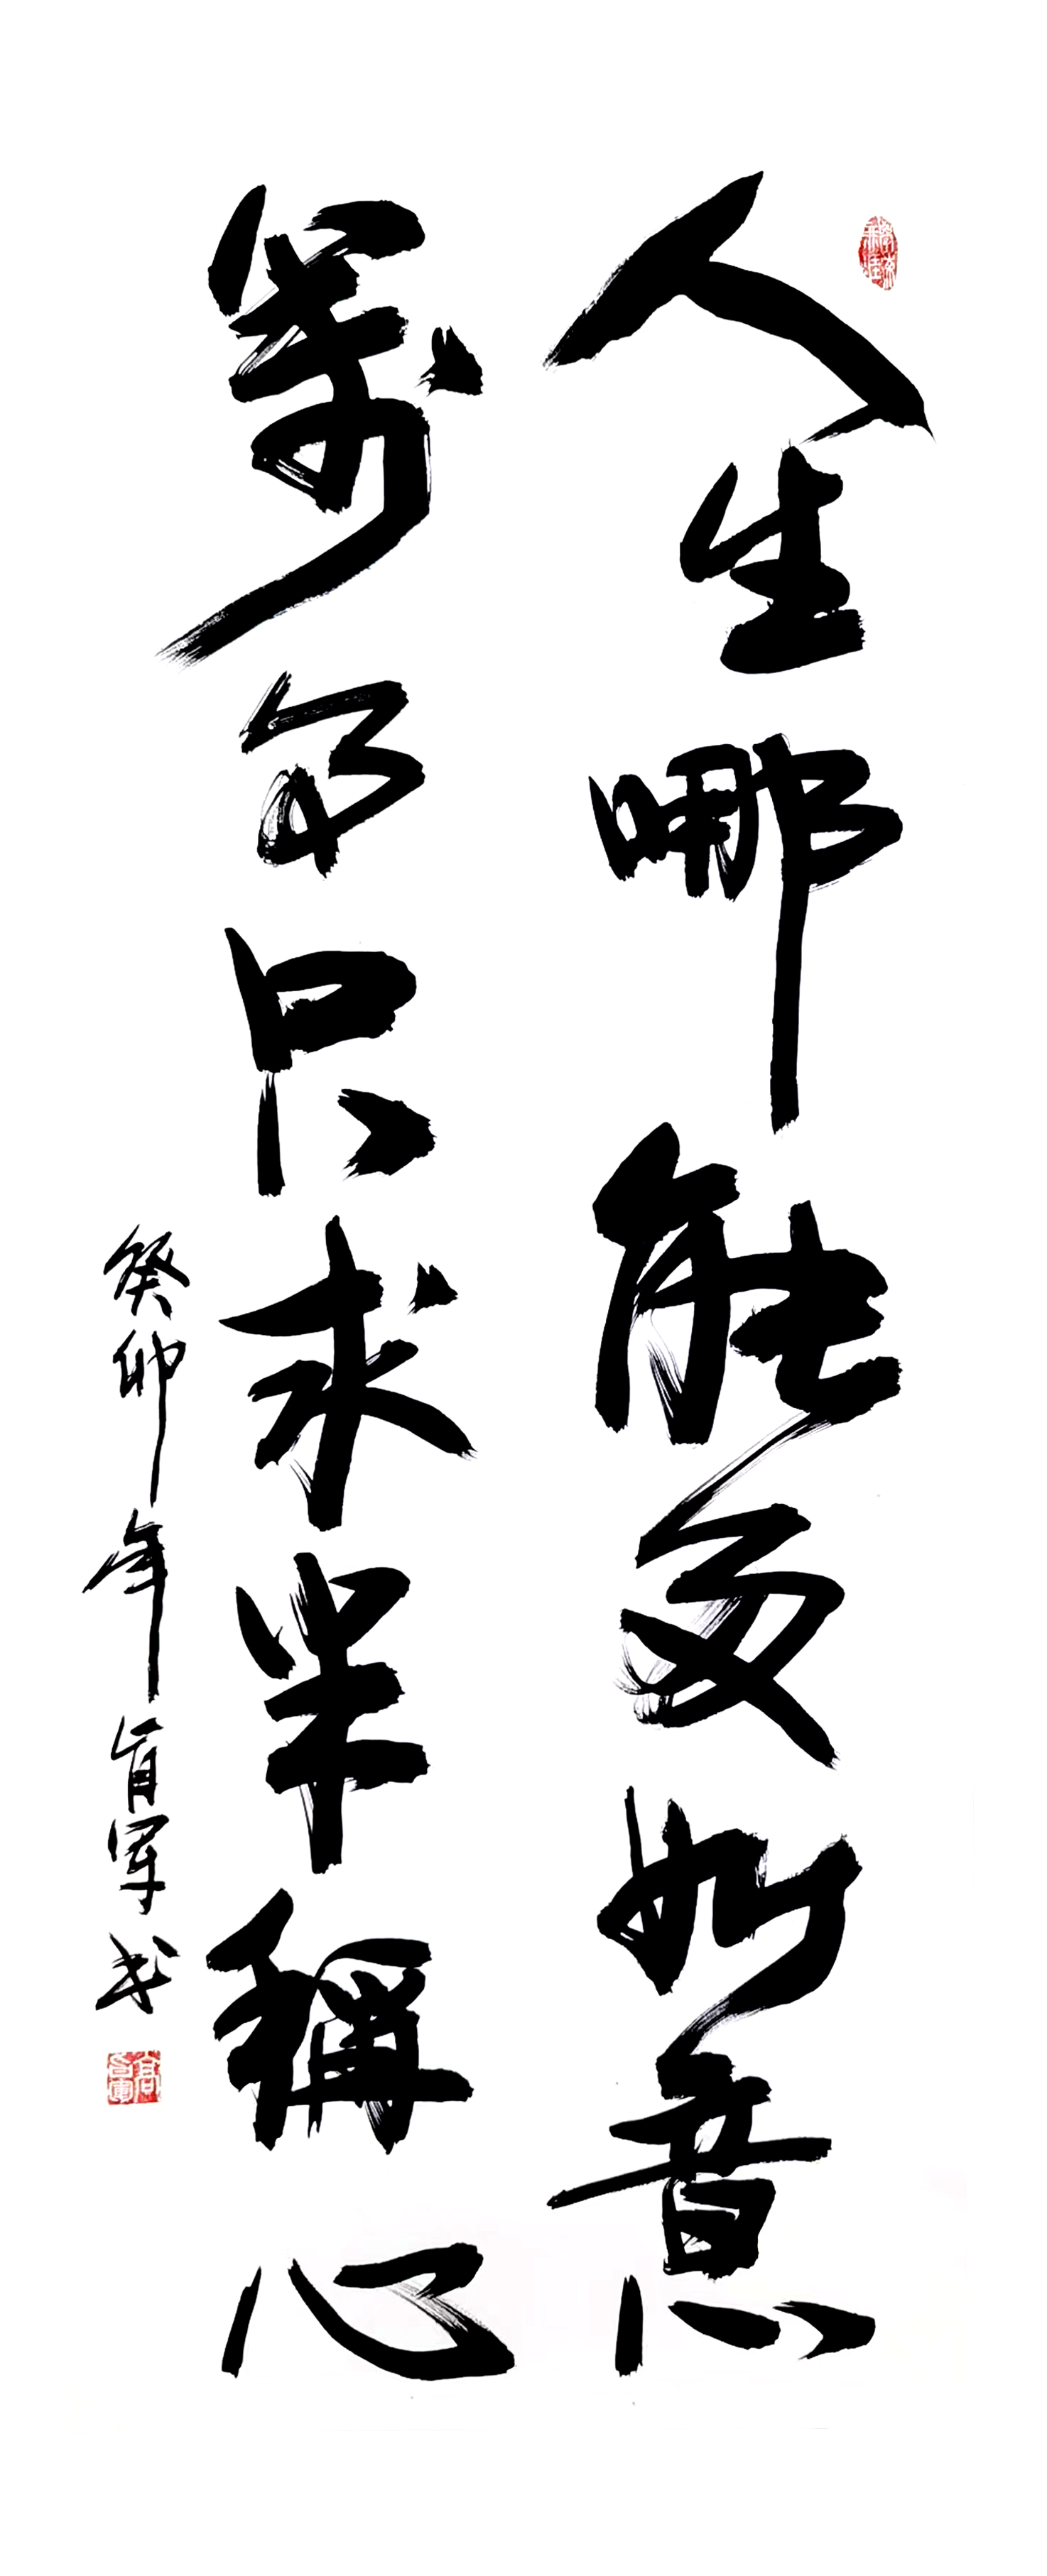 人生哪能多如意
萬事只求半稱心
癸卯年 军书